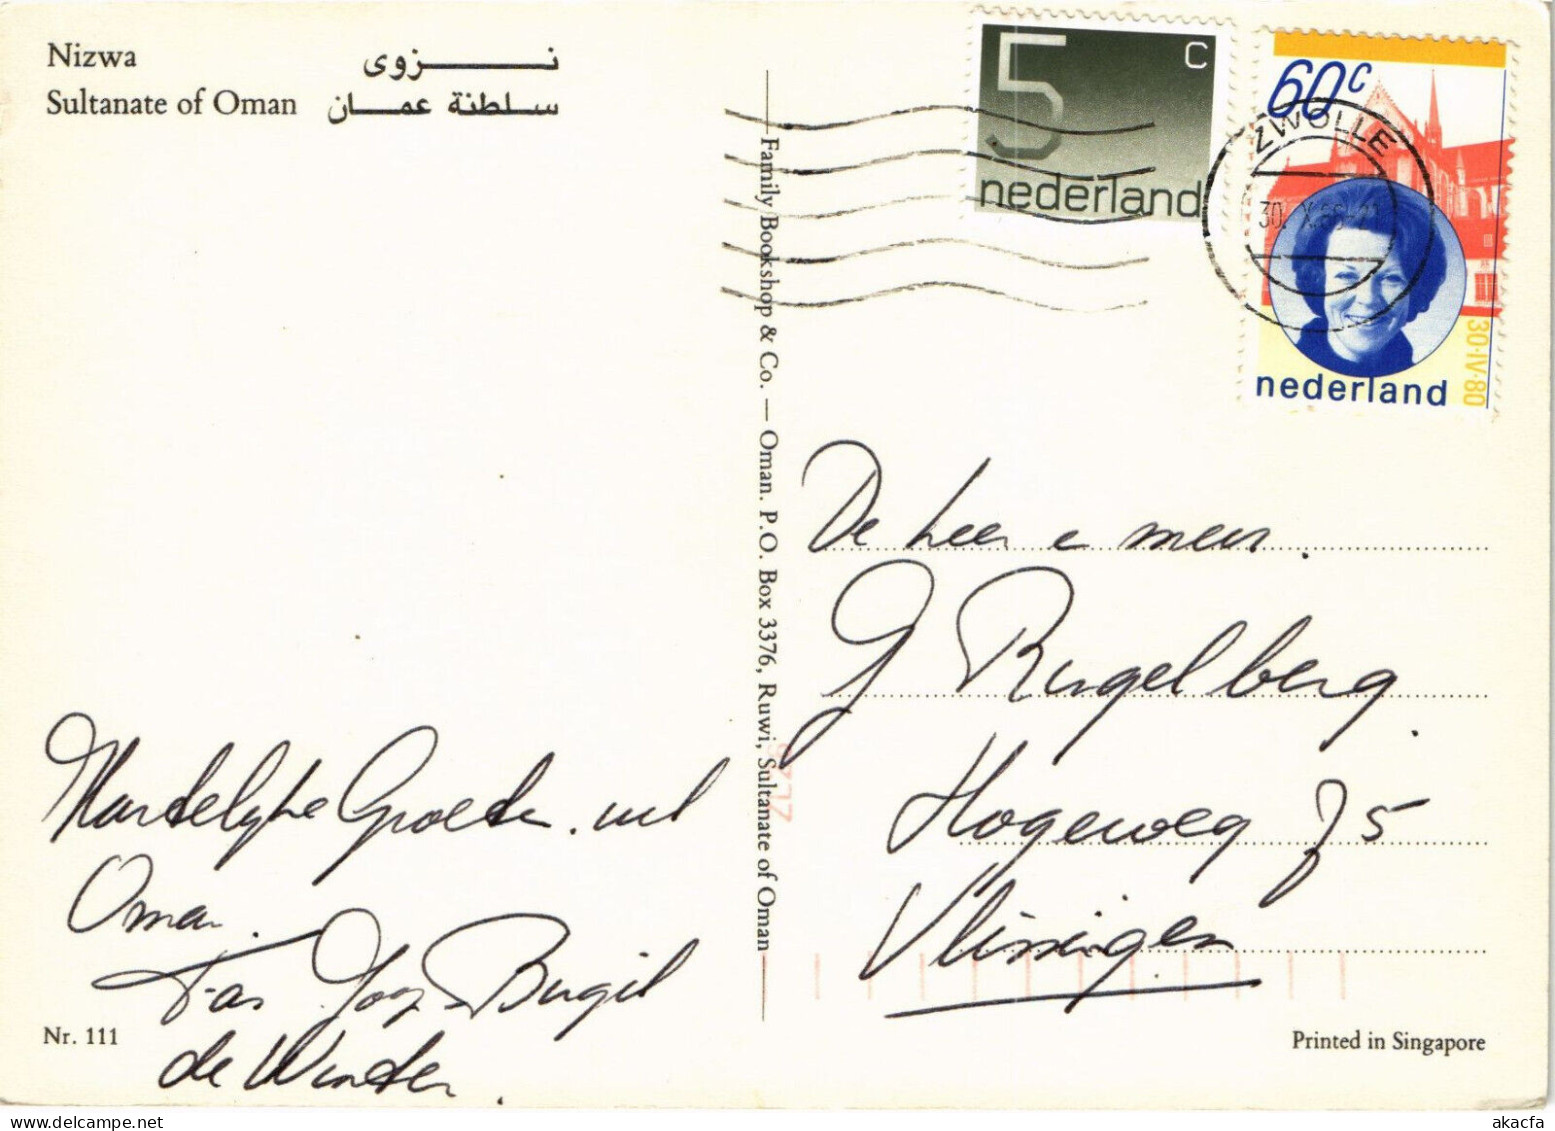 Nizwa
نـزوى
Sultanate of Oman
سـلـطنة عمـان
Family Bookshop & Co. — Oman. P.O. Box 3376, Ruwi, Sultanate of Oman
5 c
nederland
60c
nederland
30·IV·80
ZWOLLE
30. X.86
De heer e mevr.
G Rugelberg.
Hogeweg 75
Vlissingen
Hartelijke Groeten uit
Oman.
Fas Joey Burgit
de Winter.
Nr. 111
Printed in Singapore
akacfa